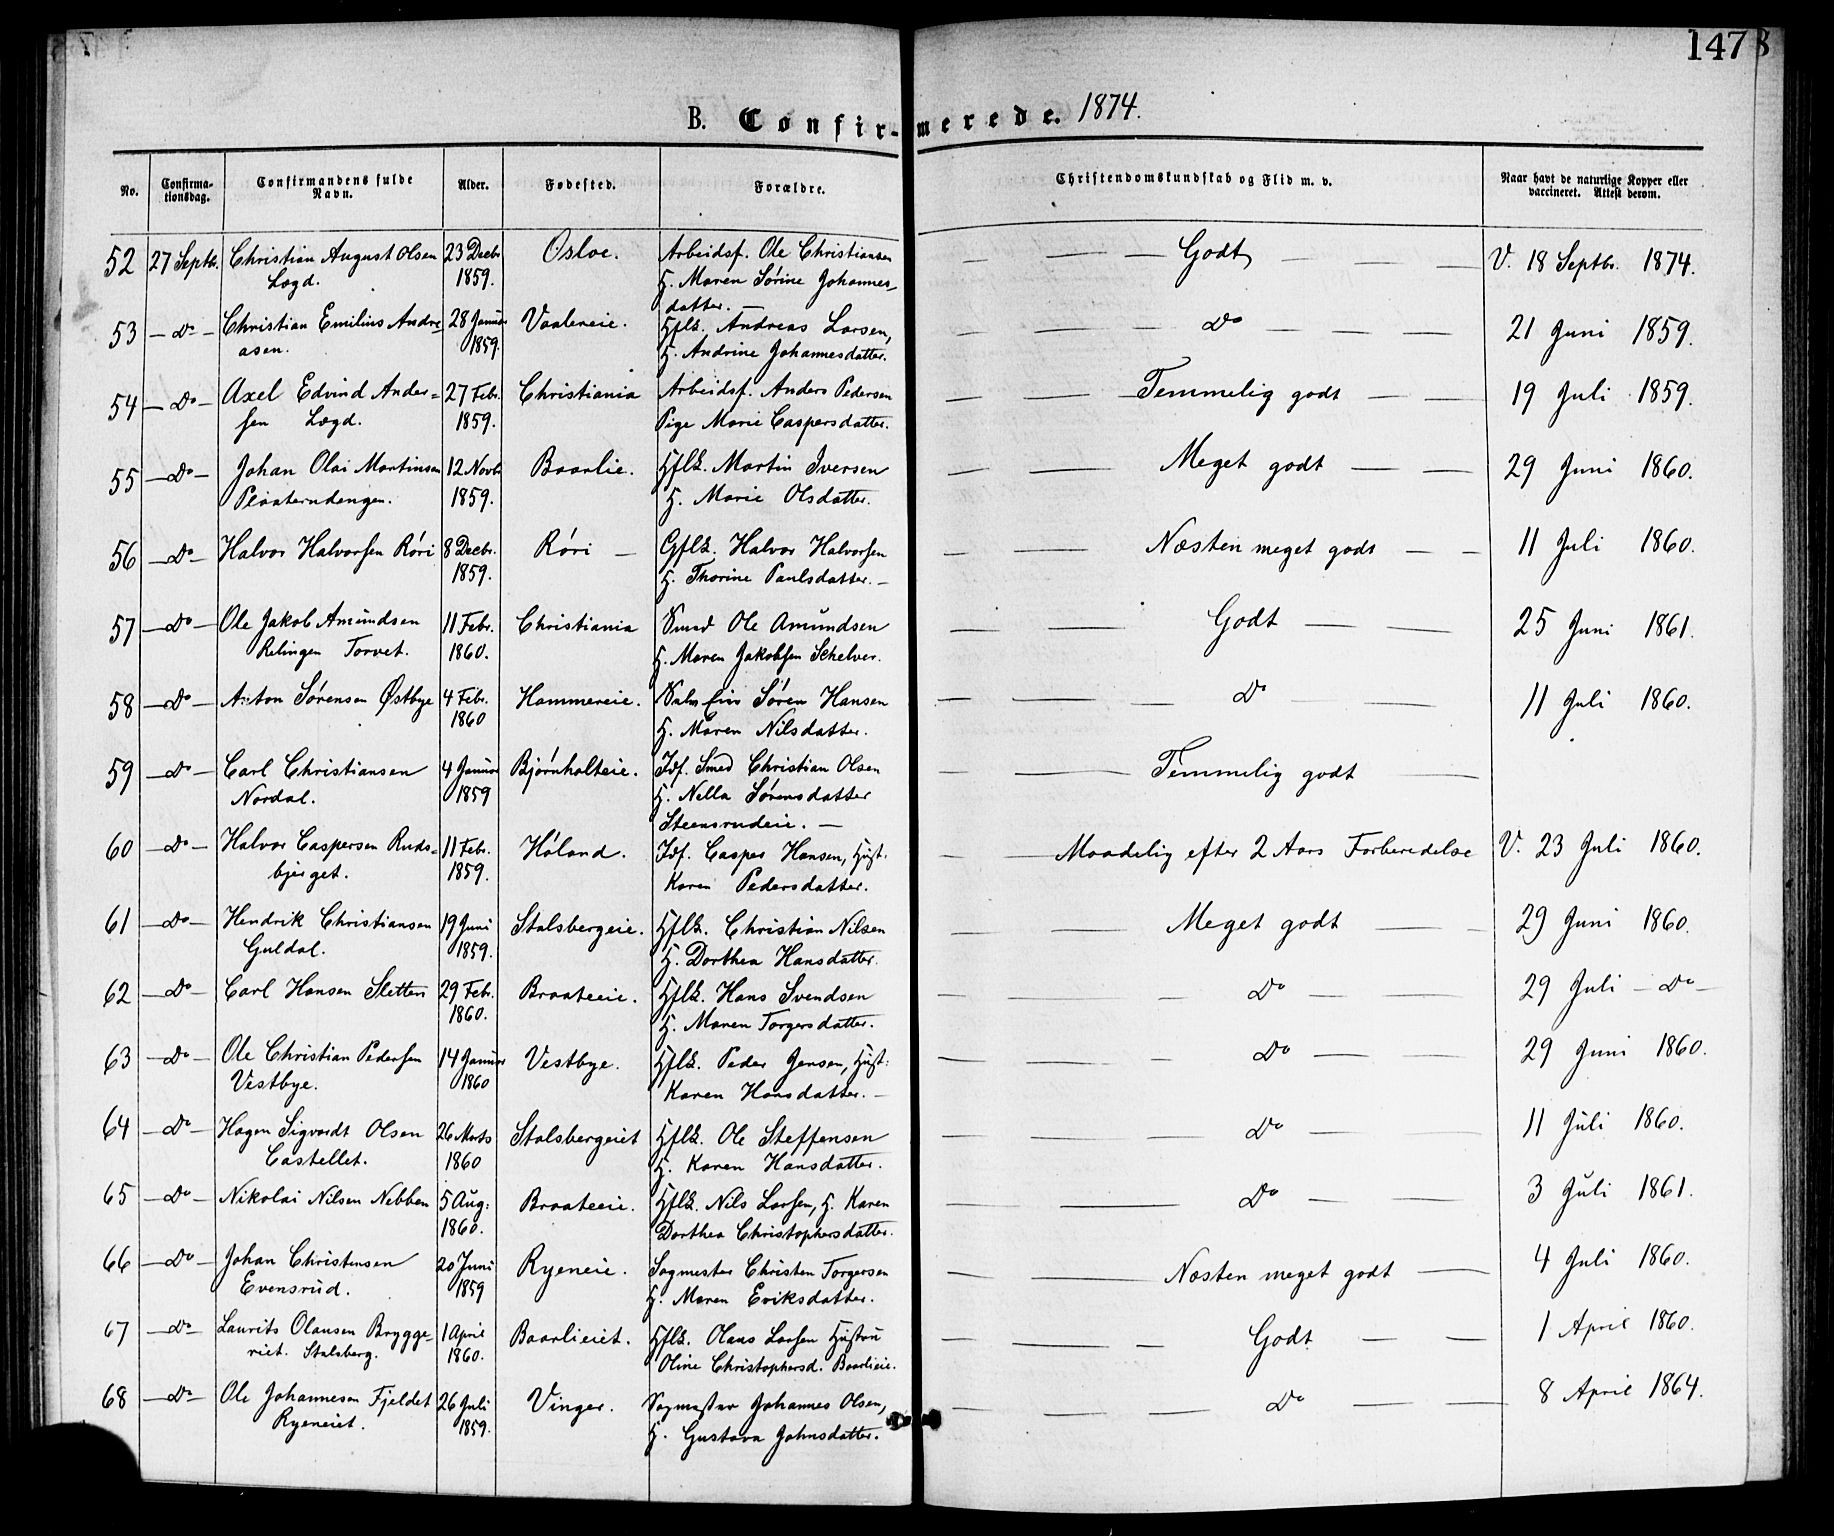 147
B. Confirmerede. 1874.
No.
Confirma-
tionsdag.
Confirmandens fulde
Navn.
Alder.
Fødested.
Forældre.
Christendomskundskab og Flid m. v.
Naar havt de naturlige Kopper eller
vaccineret. Attest derom.
52 27 Septbr. Christian August Olsen 23 Decbr. Osloe. Arbeidsf. Ole Christiansen — — — Godt — — — V. 18 Septbr. 1874.
Lægd. 1859. H. Maren Sørine Johannes-
datter. —
53 — Do — Christian Emilius Andre- 28 Januar Vaalereie. Hflk. Andreas Larsen, — — — Do — — — 21 Juni 1859.
asen. 1859. H. Andrine Johannesdatter.
54 — Do — Axel Edvind Ander- 27 Febr. Christiania Arbeidsf. Anders Pedersen — — — Temmelig godt — — 19 Juli 1859.
sen Lægd. 1859. Pige Marie Caspersdatter.
55 — Do — Johan Olai Martinsen 12 Novbr. Baarlie. Hflk. Martin Iversen — — Meget godt — — 29 Juni 1860.
Plaaterudengen. 1859. H. Marie Olsdatter.
56 — Do — Halvor Halvorsen Røri 8 Decbr. Røri — Gflk. Halvor Halvorsen — — Næsten meget godt — — 11 Juli 1860.
1859. H. Thorine Paulsdatter. —
57 — Do — Ole Jakob Amundsen 11 Febr. Christiania Smed Ole Amundsen — — Godt — — 25 Juni 1861.
Relingen Torvet. 1860. H. Maren Jakobsen Schelver.
58 — Do — Anton Sørensen Østbye 4 Febr. Hammereie. Søren Hansen — — Do — — 11 Juli 1860.
1860 H. Maren Nilsdatter.
59 — Do — Carl Christiansen 4 Januar Bjørnholteie. Idf. Smed Christian Olsen — — Temmelig godt —
Nordal. 1859 H. Nella Sørensdatter
Steensrudeie. —
60 — Do — Halvor Caspersen Ruds- 11 Febr. Høland. Idf. Casper Hansen, Hust. — — Maadelig efter 2 Aars Forberedelse V. 23 Juli 1860.
bjerget. 1859. Karen Pedersdatter.
61 — Do — Hendrik Christiansen 19 Juni Stalsbergeie. Hflk. Christian Nilsen — — Meget godt — — 29 Juni 1860.
Guldal. 1859. H. Dorthea Hansdatter.
62 — Do — Carl Hansen Sletten 29 Febr. Braateeie. Hflk. Hans Svendsen — — — Do — — 29 Juli — Do —
1860. H. Maren Torgersdatter.
63 — Do — Ole Christian Pedersen 14 Januar Vestbye. Hflk. Peder Jensen, Hust: — — — Do — — 29 Juni 1860.
Vestbye. 1860 Karen Hansdatter. —
64 — Do — Hagen Sigvardt Olsen 26 Marts Stalsbergeiet Hflk. Ole Steffensen — — — Do — — 11 Juli 1860.
Castellet. 1860 H. Karen Hansdatter.
65 — Do — Nikolai Nilsen Nebben 5 Aug: Braateeie. Hflk. Nils Larsen, H. Karen — — Do — — 3 Juli 1861.
1860. Dorthea Christophersdatter.
66 — Do — Johan Christensen 20 Juni Ryeneie. Sagmester Christen Torgersen — — Næsten meget godt — 4 Juli 1860.
Evensrud. 1859 H. Maren Eriksdatter.
67 — Do — Laurits Olausen Brygge- 1 April Baarlieiet. Hflk. Olaus Larsen Hustru — — — Godt — — 1 April 1860.
riet. Stalsberg. 1860. Oline Christophersd. Baarlieie.
68 — Do — Ole Johannesen Fjeldet 26 Juli Vinger. Sagmester Johannes Olsen, — — — — Do — — 8 April 1864.
Ryeneiet. 1859. H. Gustava Johnsdatter.